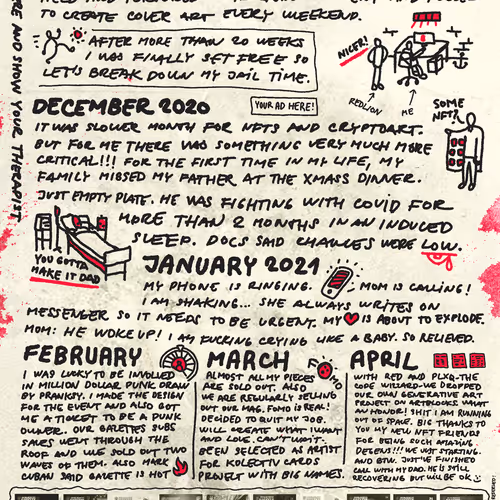 TO CREATE COVER ART EVERY WEEKEND.
AFTER MORE THAN 20 WEEKS
I WAS FINALLY SET FREE SO
LET'S BREAK DOWN MY JAIL TIME.
NICE!
REDLION
ME
RE AND SHOW YOUR THERAPIST
DECEMBER 2020
YOUR AD HERE!
SOME
NFT?
IT WAS SLOWER MONTH FOR NFTS AND CRYPTOART.
BUT FOR ME THERE WAS SOMETHING VERY MUCH MORE
CRITICAL!!! FOR THE FIRST TIME IN MY LIFE, MY
FAMILY MISSED MY FATHER AT THE XMASS DINNER.
JUST EMPTY PLATE. HE WAS FIGHTING WITH COVID FOR
MORE THAN 2 MONTHS IN AN INDUCED
SLEEP. DOCS SAID CHANCES WERE LOW.
YOU GOTTA
MAKE IT DAD
JANUARY 2021
MY PHONE IS RINGING. MOM IS CALLING!
I AM SHAKING... SHE ALWAYS WRITES ON
MESSENGER SO IT NEEDS TO BE URGENT. MY IS ABOUT TO EXPLODE.
MOM: HE WOKE UP! I AM FUCKING CRYING LIKE A BABY. SO RELIEVED.
FEBRUARY
I WAS LUCKY TO BE INVOLVED
IN MILLION DOLLAR PUNK DRAW
BY PRANKSY. I MADE THE DESIGN
FOR THE EVENT AND ALSO GOT
ME A TICKET TO BE A PUNK
OWNER. OUR GALETTE SUBS
SALES WENT THROUGH THE
ROOF AND WE SOLD OUT TWO
WAVES OF THEM. ALSO MARK
CUBAN SAID GALETTE IS HOT
MARCH
FOMO
ALMOST ALL MY PIECES
ARE SOLD OUT. ALSO
WE ARE REGULARLY SELLING
OUT OUR MAG. FOMO IS REAL!
DECIDED TO QUIT MY JOB.
WILL CREATE WHAT I WANT
AND LOVE. CAN'T WAIT.
BEEN SELECTED AS ARTIST
FOR KOLECTIV CARDS
PROJECT WITH BIG NAMES.
APRIL
WITH RED AND PLXQ-THE
CODE WIZARD-WE DROPPED
OUR OWN GENERATIVE ART
PROJECT ON ARTBLOCKS WHAT
AN HONOR! SHIT I AM RUNNING
OUT OF SPACE. BIG THANKS TO
YOU MY NEW NFT FRIENDS
FOR BEING SUCH AMAZING
DEGENS!!! WE JUST STARTING.
AND BTW. JUST I'VE FINISHED
CALL WITH MY DAD. HE IS STILL
RECOVERING BUT WILL BE OK :)